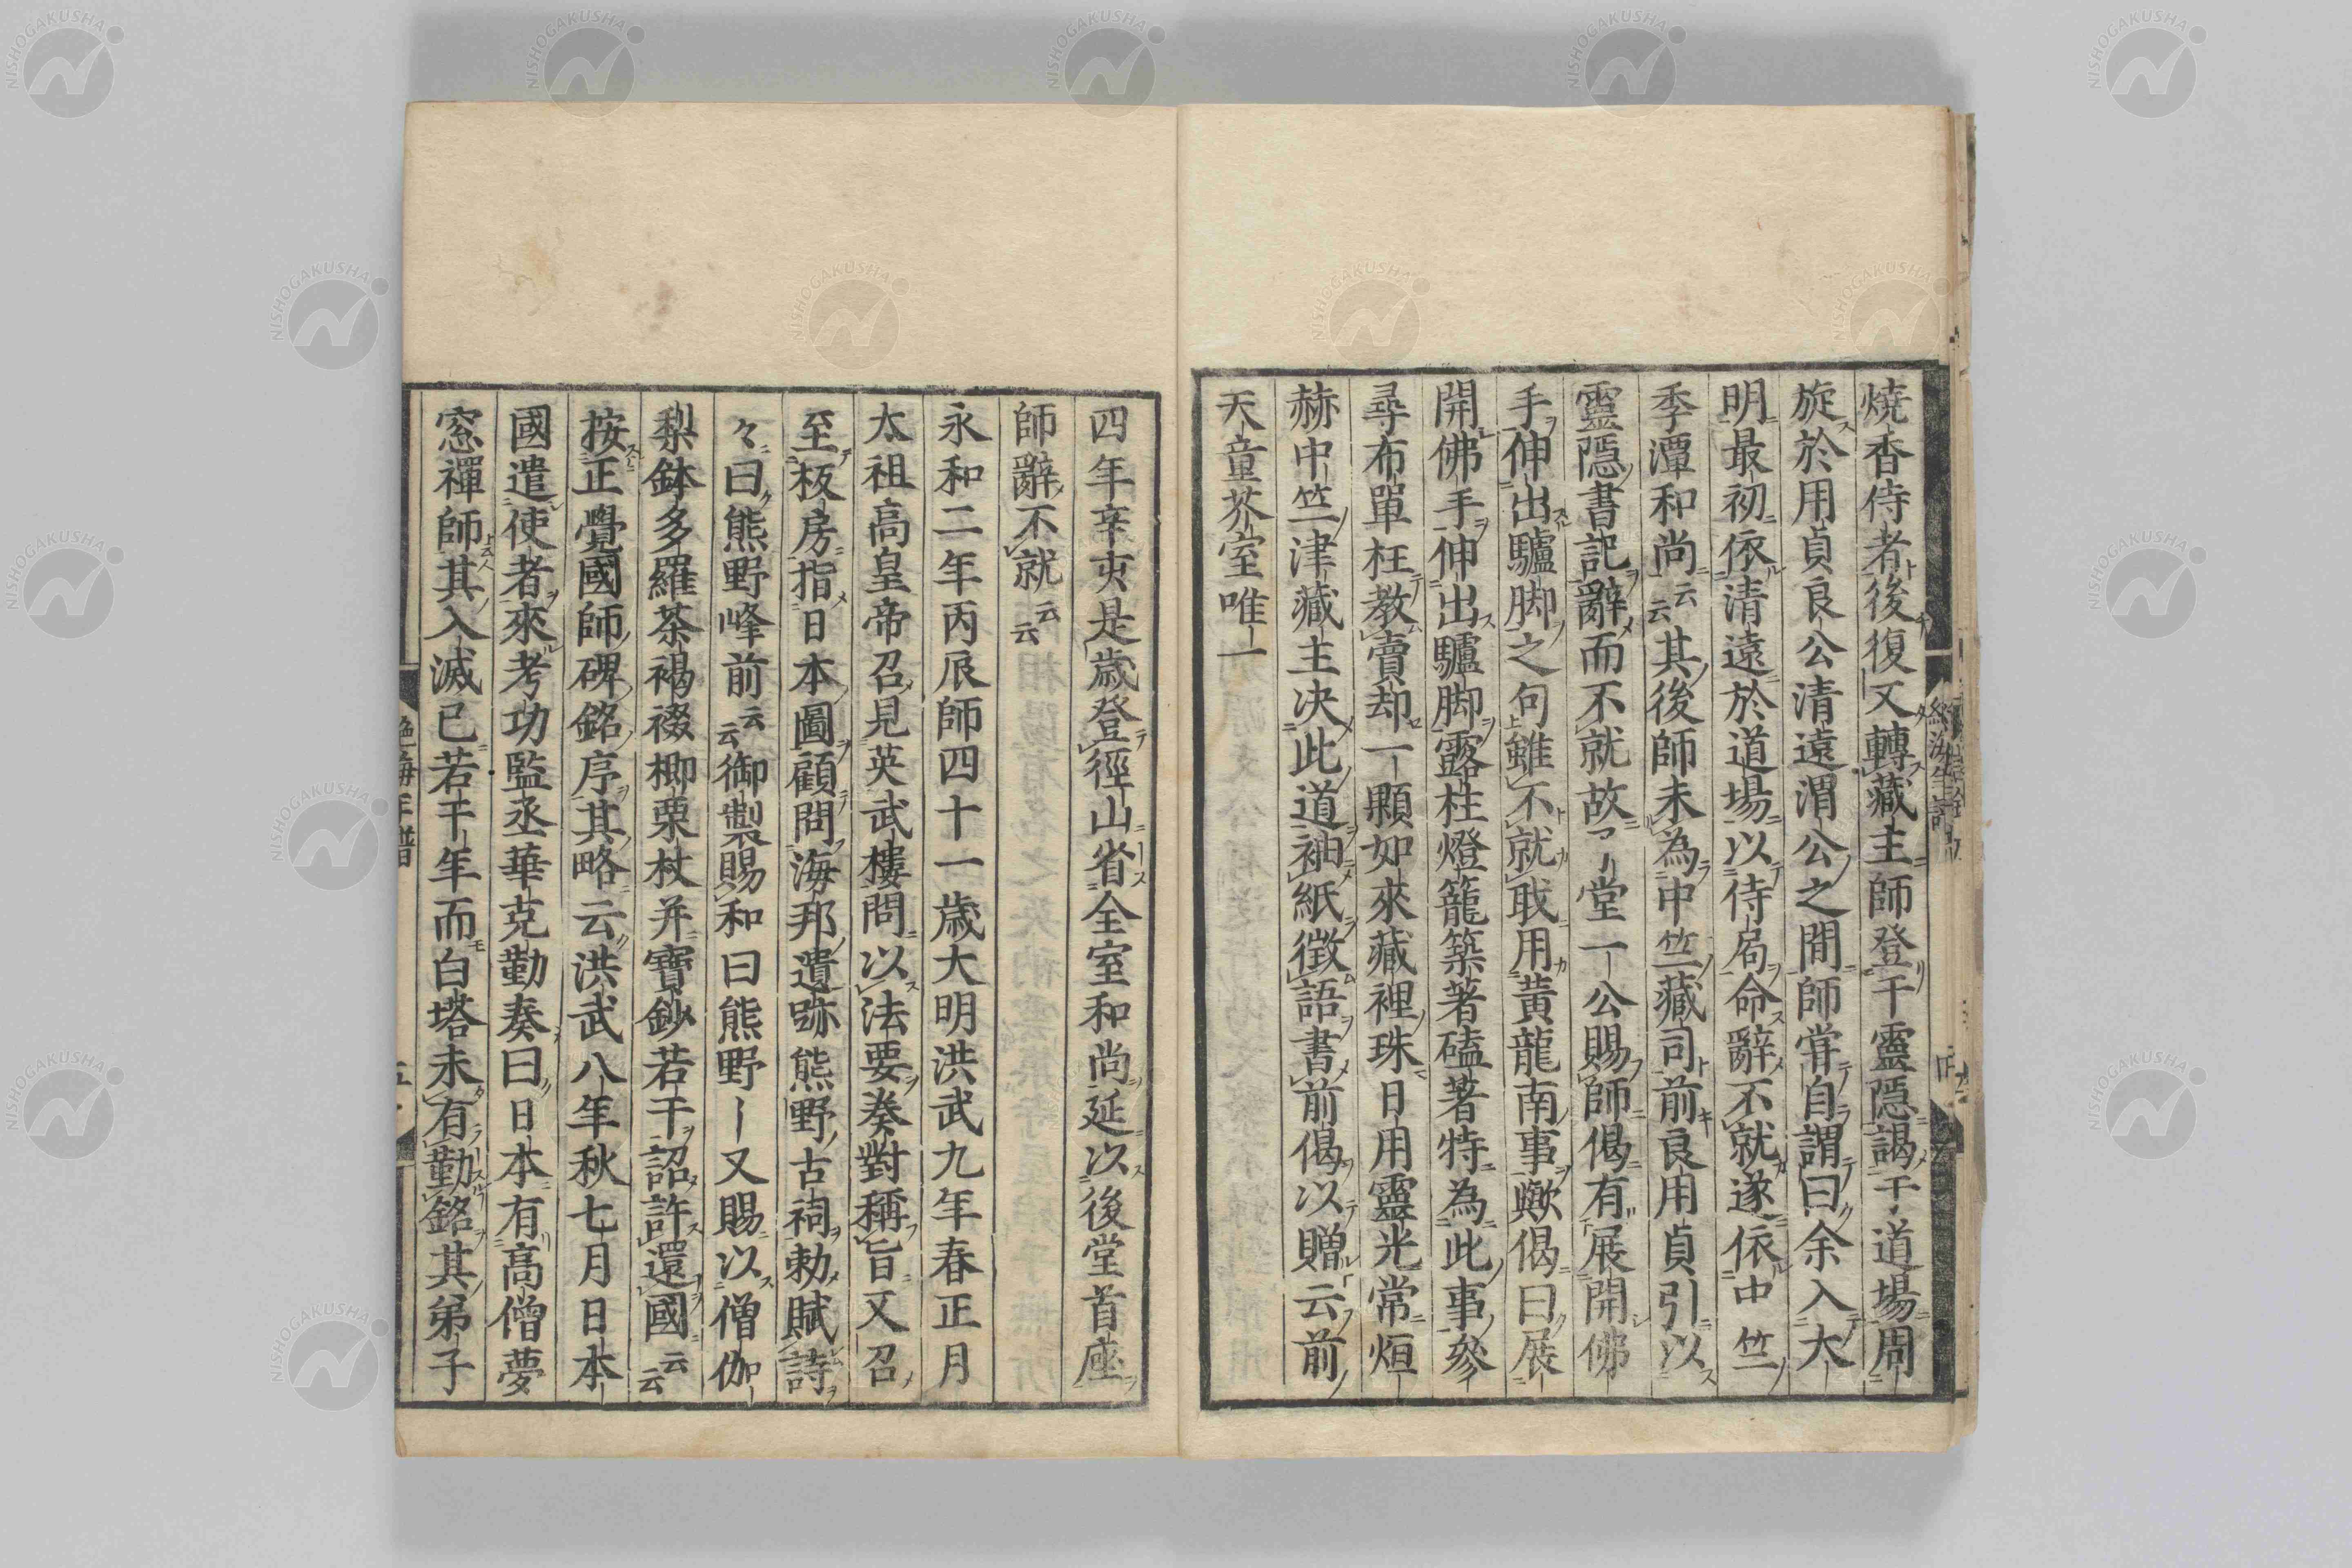 燒香侍者後復又轉藏主師登于靈隱謁于道場周
旋於用貞良公清遠渭公之間師甞自謂曰余入大
明最初依清遠於道場以侍局命辭不就遂依中竺
季潭和尚云云其後師未為中竺藏司前良用貞引以
靈隱書記辭而不就故堂一公賜師偈有展開佛
手伸出驢脚之句雖不就取用黃龍南事歟偈曰展
開佛手伸出驢脚露柱燈籠築著磕著特為此事參
尋布單枉教賣却一顆如來藏裡珠日用靈光常烜
赫中竺津藏主决此道袖紙徵語書前偈以贈云前
天童芥室唯一
四年辛亥是歲登徑山省全室和尚延以後堂首座
師辭不就云云
永和二年丙辰師四十一歲大明洪武九年春正月
太祖高皇帝召見英武樓問以法要奏對稱旨又召
至板房指日本圖顧問海邦遺跡熊野古祠勅賦詩
々曰熊野峰前云云御製賜和曰熊野｜又賜以僧伽
梨鉢多羅茶褐裰楖栗杖并寶鈔若干詔許還國云云
按正覺國師碑銘序其略云洪武八年秋七月日本
國遣使者來考功監丞華克勤奏曰日本有高僧夢
窓禪師其入滅已若干年而白塔未有勤銘其弟子
NISHOGAKUSHA